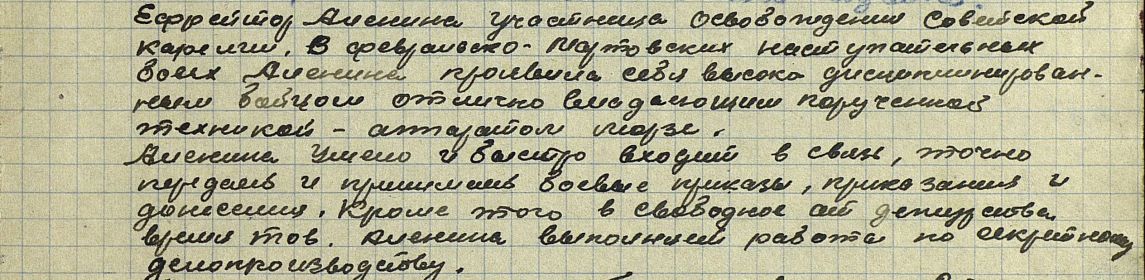 Ефрейтор Аленина участница освобождения Советской
Карелии. В февральско-мартовских наступательных
боях Аленина проявила себя высоко дисциплинирован-
ным бойцом отлично владеющим порученной
техникой - аппаратом морзе.
Аленина умело и быстро входит в связь, точно
передаёт и принимает боевые приказы, приказания и
донесения. Кроме этого в свободное от дежурства
время тов. Аленина выполняет работа по секретному
делопроизводству.